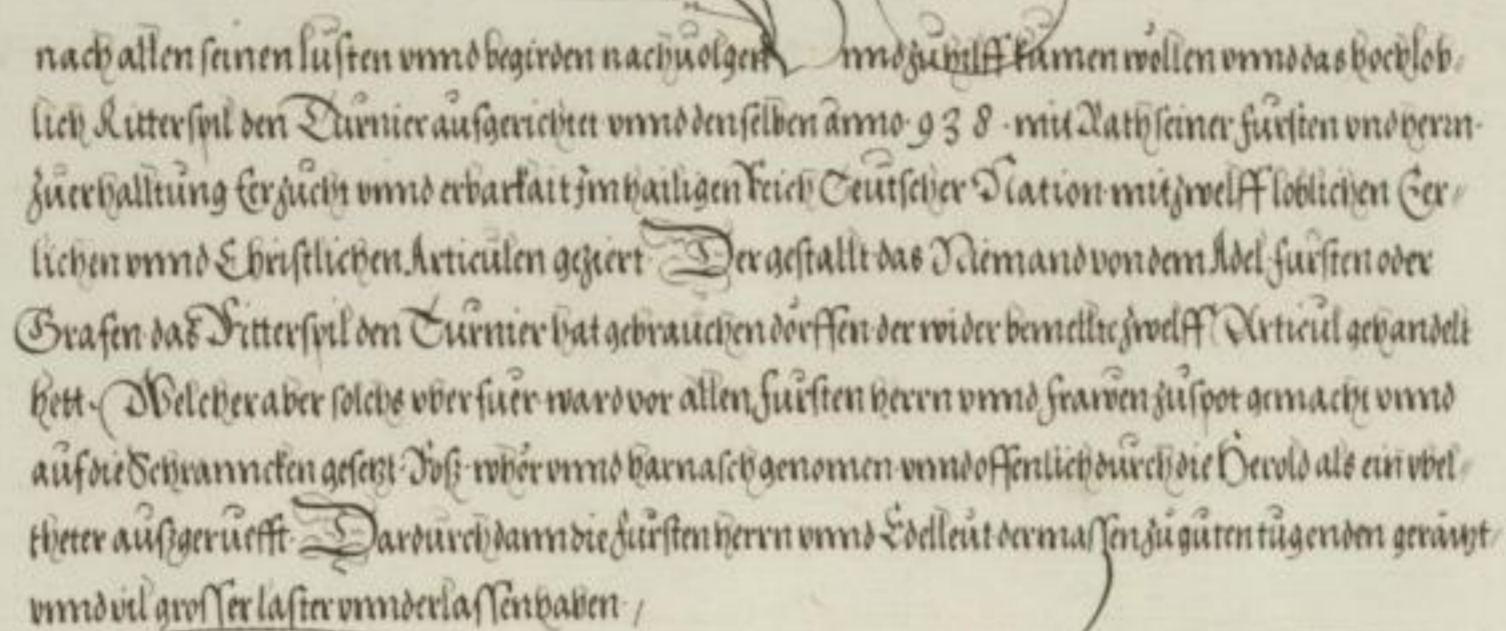 nach allen seinen lüsten vnnd begirden nachuolgen Vnnd zu hilff kumen wöllen vnnd das hochlob-
lich Ritterspil den Turnier aufgerichtet vnnd denselben anno 938. mit Rath seiner fürsten vnd herrn.
zuerhalltung Eer zucht vnnd erbarkait jm hailigen Reich Teutscher Nation mit zwelff loblichen Eer-
lichen vnnd Christlichen Articulen geziert Der gestallt das Niemand von dem Adel fürsten oder
Grafen das Ritterspil den Turnier hat gebrauchen dörffen der wider bemellte zwelff Articul gehandelt
hett. Welcher aber solchs vberfuer ward vor allen fürsten herrn vnnd frawen zu spot gemacht vnnd
auf die Schranncken gesetzt Roß wher vnnd harnasch genomen vnnd offenlich durch die Herold als ein vbel-
theter außgeruefft Dardurch dann die fürsten herrn vnnd Edelleut dermassen zu guten tugenden geraitzt
vnnd vil grosser laster vnnderlassen haben /